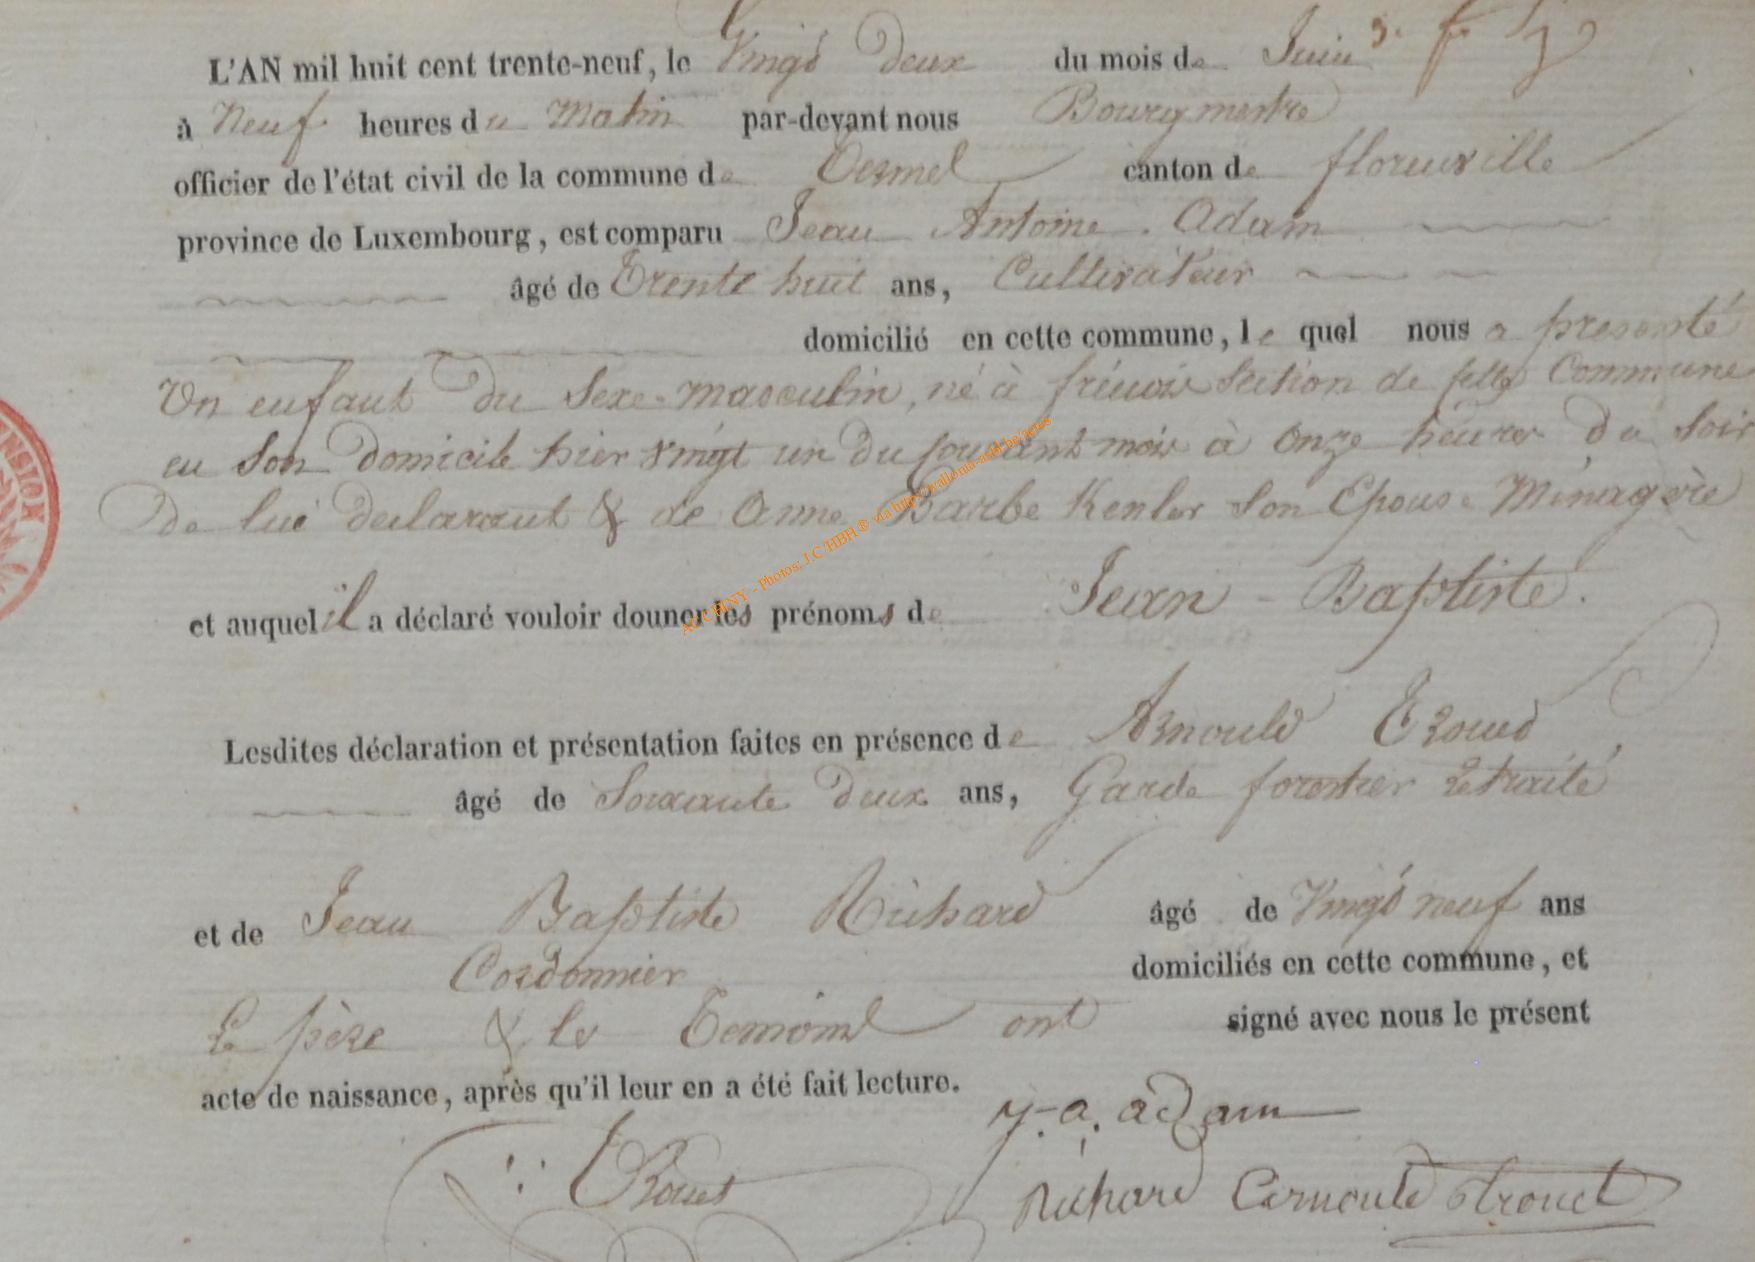 L'AN mil huit cent trente-neuf, le Vingt Deux du mois de Juin
à Neuf heures du Matin par-devant nous Bourgmestre
officier de l'état civil de la commune de Termes canton de florenville
province de Luxembourg, est comparu Jean Antoine Adam
âgé de Trente huit ans, Cultivateur
domicilié en cette commune, le quel nous a présenté
Un enfant du Sexe masculin, né à frénois Section de cette Commune
en son Domicile hier vingt un du courant mois à onze heures du Soir
De lui declarant & de Anne Barbe Kenler son Epouse Ménagère
et auquel il a déclaré vouloir donner les prénoms de Jean-Baptiste.
Lesdites déclaration et présentation faites en présence de Arnould Troued
âgé de Soixante deux ans, Garde forestier retraité
et de Jean Baptiste Richard âgé de Vingt neuf ans
Cordonnier domiciliés en cette commune, et
Le père & les Temoins ont signé avec nous le présent
acte de naissance, après qu'il leur en a été fait lecture.
j-a. adam
Richard Arnould Trouet
AC CHINY - Photos: J.C HBH ® via http://wallonia-asbl.be/actes